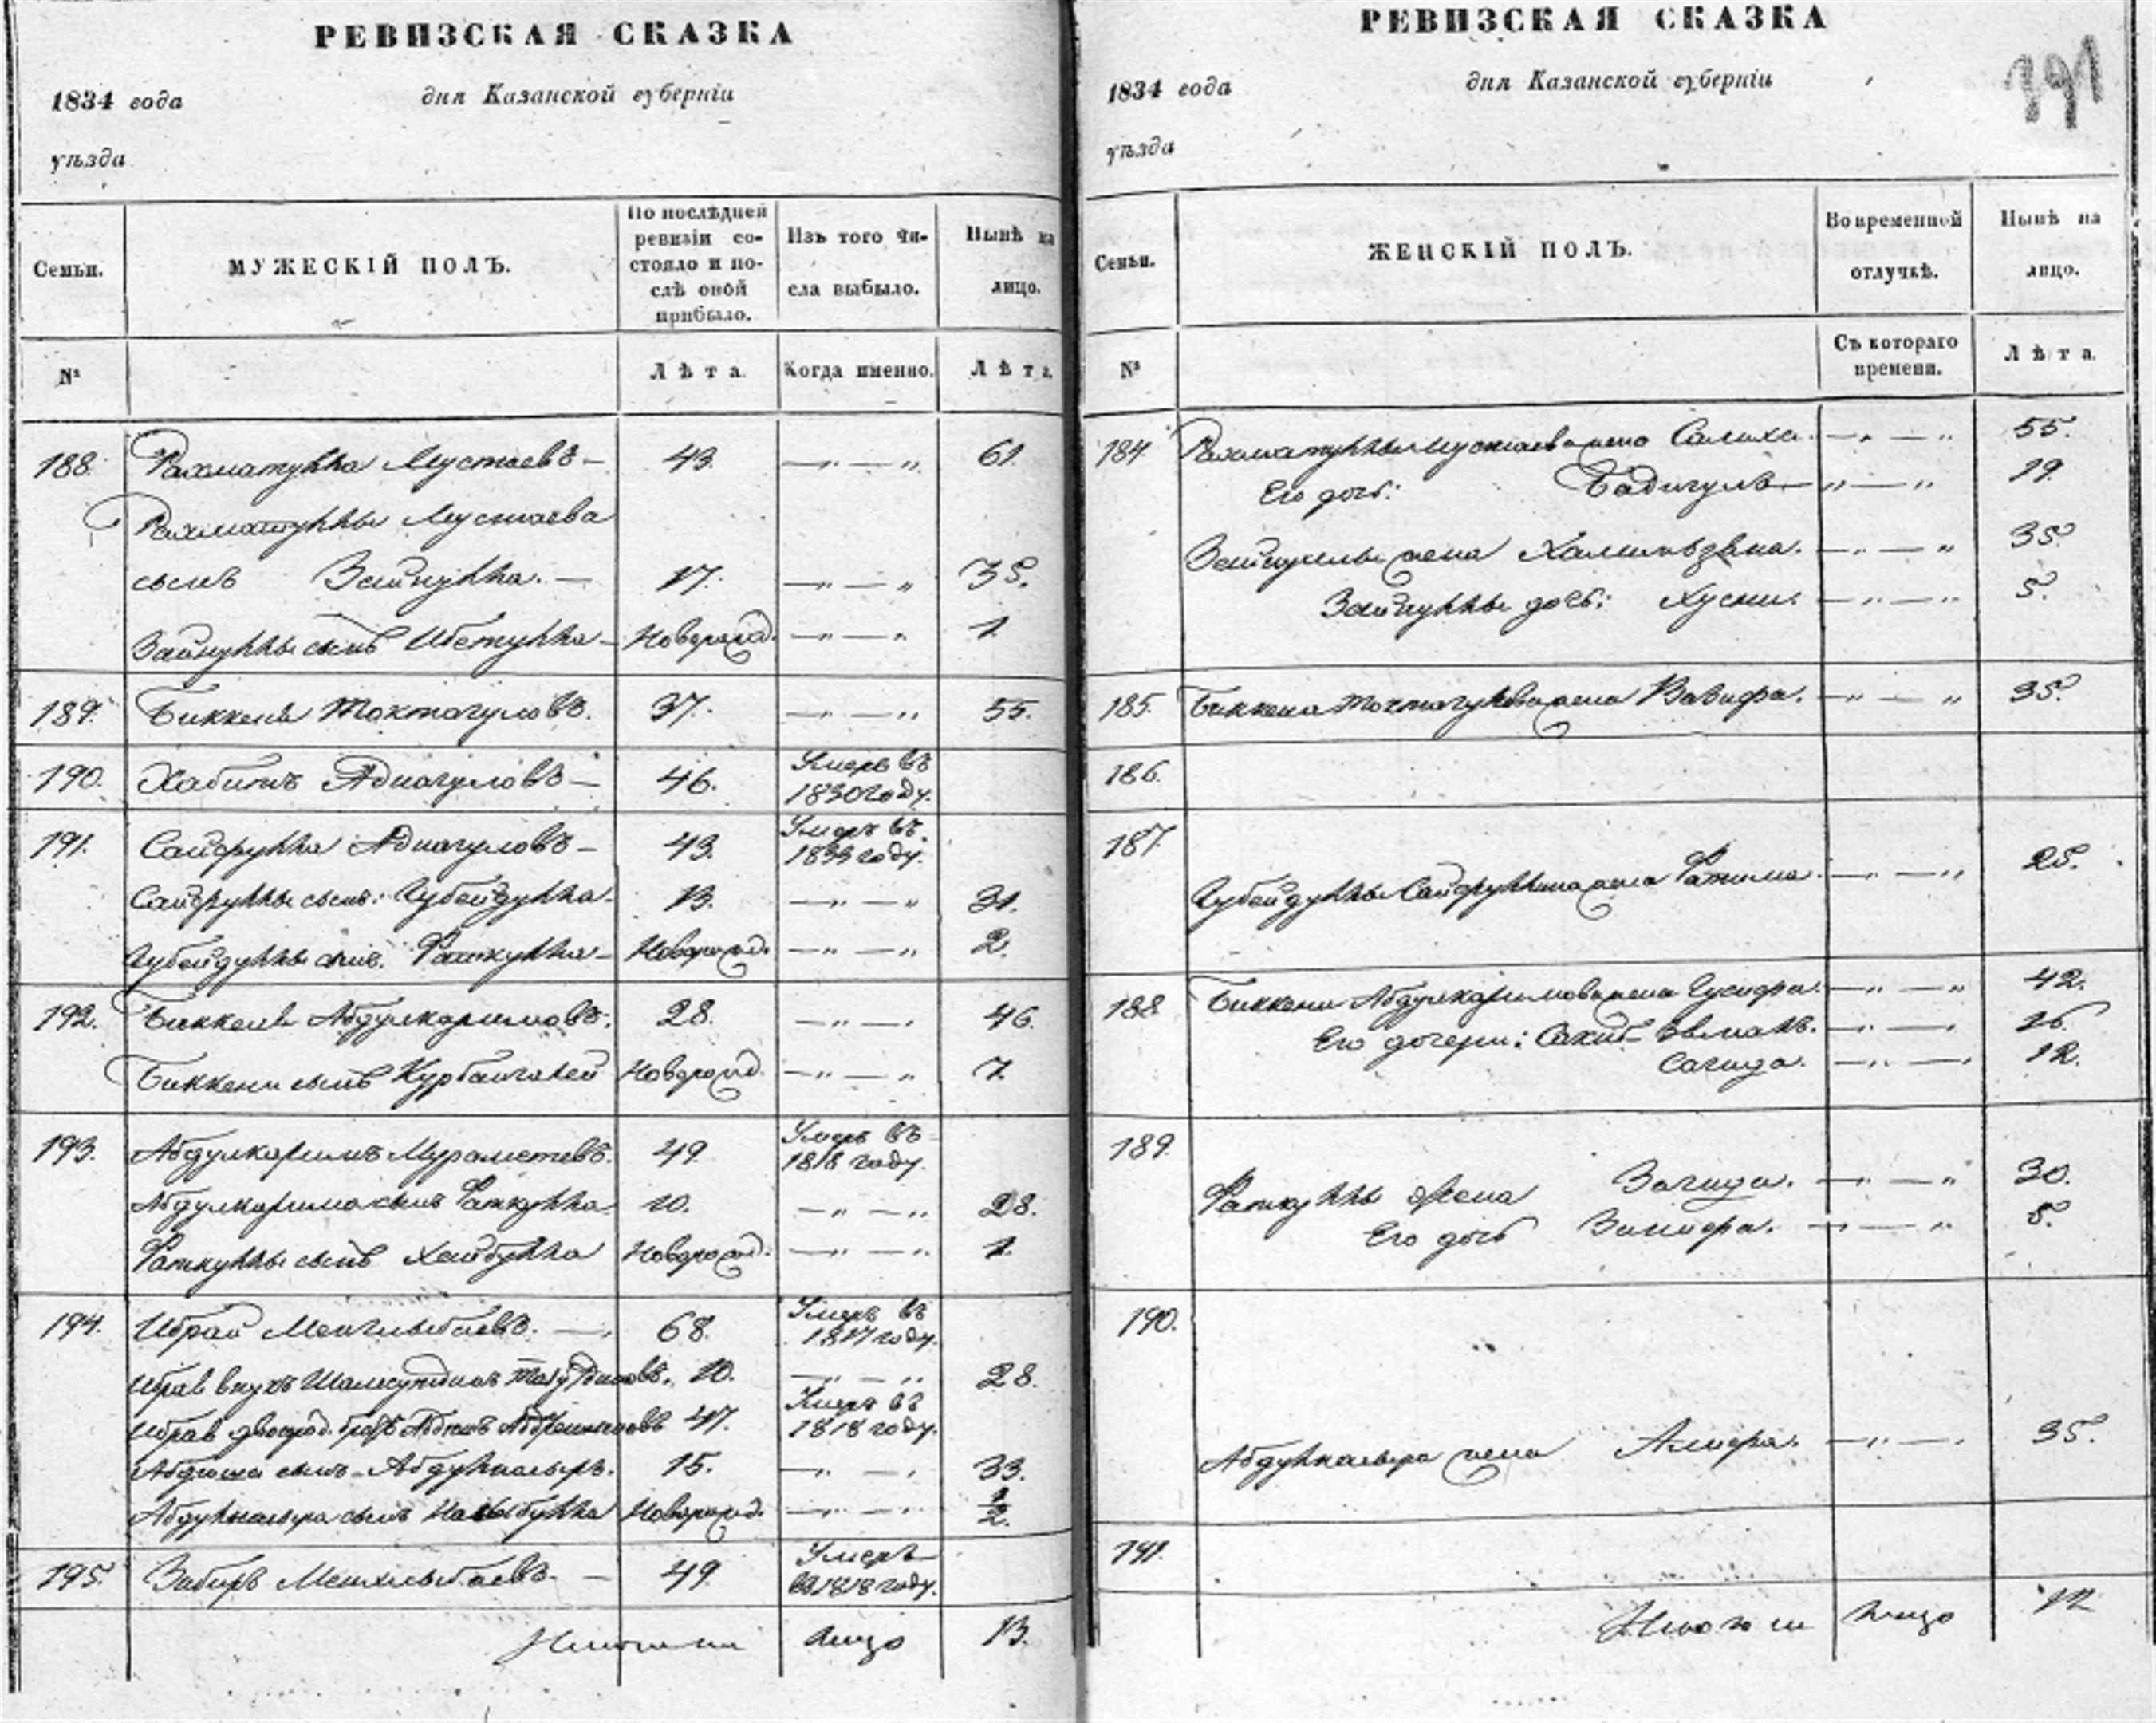 РЕВИЗСКАЯ СКАЗКА
1834 года дня Казанской губерніи
уѣзда
Семьи.
МУЖЕСКІЙ ПОЛЪ.
По послѣдней ревизіи со-
стояло и по-
слѣ оной
прибыло.
Изъ того чи-
сла выбыло.
Нынѣ на
лицо.
№
Лѣта
Когда именно.
Лѣта.
188. Рахматулла Мустаевъ — 43. —„—„ 61.
Рахматуллы Мустаева
сынъ Зайнулла. — 17. —„—„ 35.
Зайнуллы сынъ — Новорожд. —„—„ 1.
189. Биккень Токтагуловъ. 37. —„—„ 55.
190. Хабитъ Адиагуловъ — 46. Умеръ въ
1830 году.
191. Сайфулла Адиагуловъ — 43. Умеръ въ
1833 году.
Сайфуллы сынъ: Губейдулла. 13. —„—„ 31.
Губейдуллы сынъ. Фаткулла — Новорожд. —„—„ 2.
192. Биккень Абдулкаримовъ. 28. —„—„ 46.
Биккени сынъ Курбангалей Новорожд. —„—„ 7.
193. Абдулкаримъ 49. Умеръ въ
1818 году.
Абдулкарима сынъ Фаткулла 10. —„—„ 28.
Фаткуллы сынъ Хайбулла Новорожд. —„—„ 1.
194. Ибрай Менглыбаевъ. — 68. Умеръ въ
1817 году.
Ибрая внукъ 10. —„—„ 28.
Ибрая двоюрод. братъ 47. Умеръ въ
1818 году.
сынъ Абдулнасыръ. 15. —„—„ 33.
Абдулнасыра сынъ Новорожд. —„—„ 1/2.
195. Забиръ Менглыбаевъ — 49. Умеръ
въ 1818 году.
Итого на лицо 13.
РЕВИЗСКАЯ СКАЗКА
191
1834 года дня Казанской губерніи
уѣзда
Семьи.
ЖЕНСКІЙ ПОЛЪ.
Во временной
отлучкѣ.
Нынѣ на
лицо.
№
Съ котораго
времени.
Лѣта.
184. Рахматуллы Мустаева жена Салиха. —„—„ 55.
Его дочь: Бадигулъ — „—„ 19.
Зайнуллы жена —„—„ 35.
Зайнуллы дочь: Хусни. —„—„ 5.
185. Биккеня Токтагулова жена —„—„ 35.
186.
187.
Губейдуллы Сайфуллина жена Фатима. —„—„ 25.
188. Биккени Абдулкаримова жена —„—„ 42.
Его дочери: —„—„ 16.
Сагида. —„—„ 12.
189.
Фаткуллы жена Загида. —„—„ 30.
Его дочь —„—„ 5.
190.
Абдулнасыра жена —„—„ 35.
191.
Итого на лицо 12